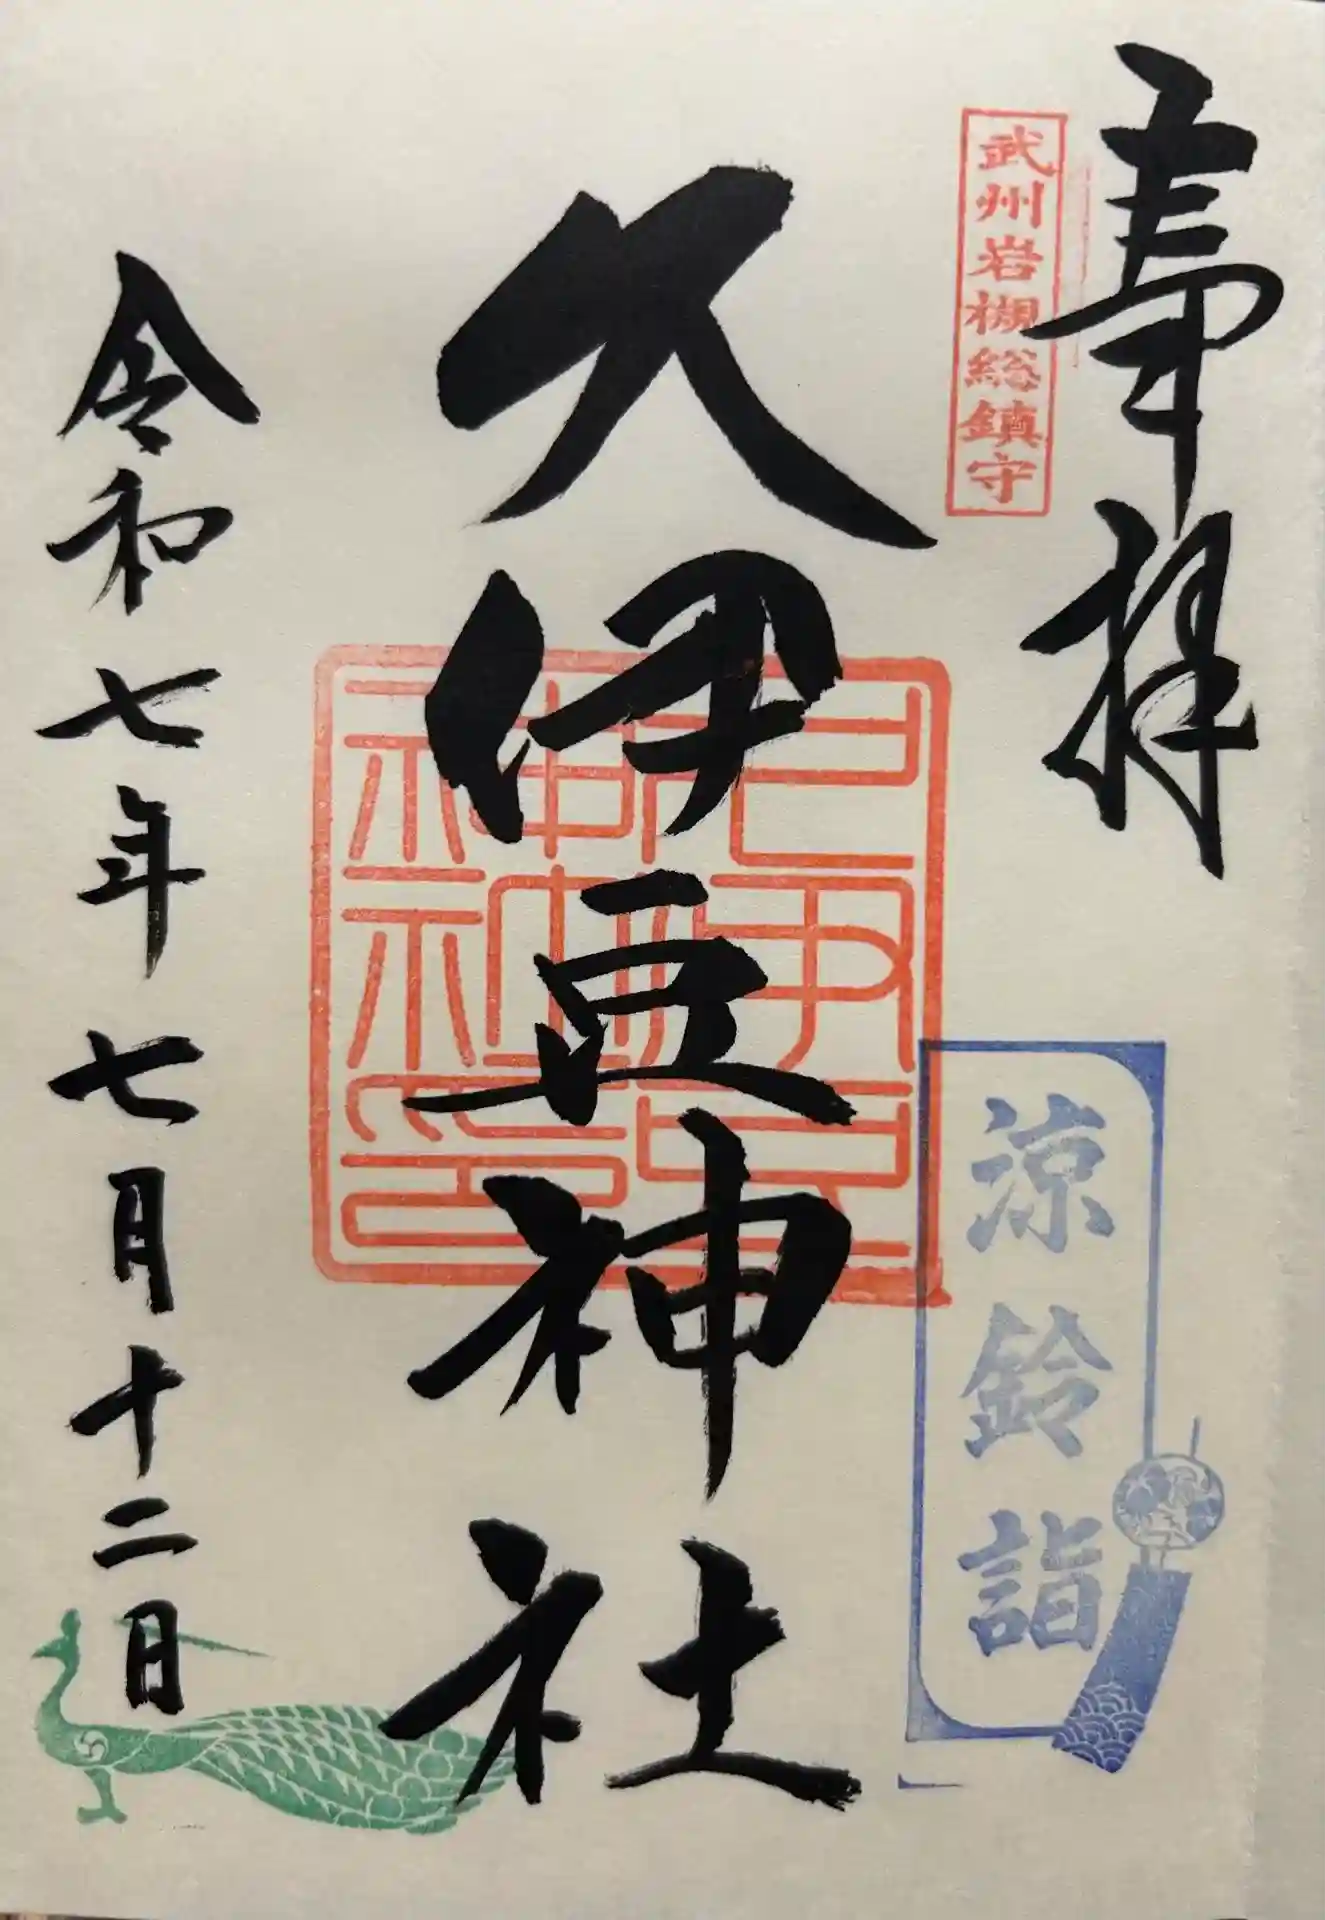 奉拝
武州岩槻総鎮守
涼鈴詣
久伊豆神社
久伊豆神社神社印
令和七年七月十二日